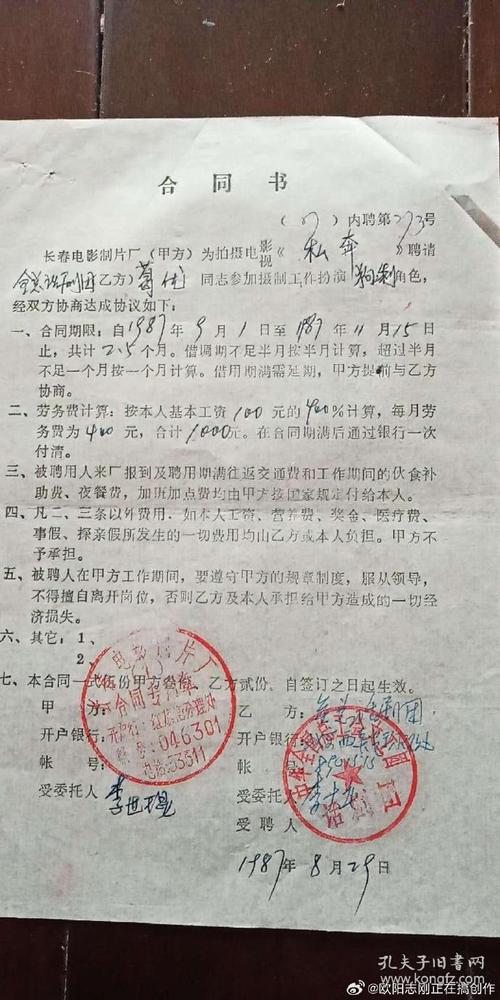 合同书
(87)内聘第273号
长春电影制片厂（甲方）为拍摄电影视《私奔》聘请
全总话剧团乙方）葛优 同志参加摄制工作扮演 角色，
经双方协商达成协议如下：
一、合同期限：自1987年9月1日至1987年11月15日
止，共计2.5个月。借调期不足半月按半月计算，超过半月
不足一个月按一个月计算。借用期满需延期，甲方提前与乙方
协商。
二、劳务费计算：按本人基本工资100元的400%计算，每月劳
务费为400元，合计1000元。在合同期满后通过银行一次
付清。
三、被聘用人来厂报到及聘用期满往返交通费和工作期间的伙食补
助费、夜餐费，加班加点费均由甲方按国家规定付给本人。
四、凡二、三条以外费用．如本人工资、营养费、奖金、医疗费、
事假、探亲假所发生的一切费用均由乙方或本人负担。甲方不
予承担。
五、被聘人在甲方工作期间，要遵守甲方的规章制度，服从领导，
不得擅自离开岗位，否则乙方及本人承担给甲方造成的一切经
济损失。
六、其它：1、
2、
七、本合同一式 份甲方 份，乙方贰份。自签订之日起生效。
甲 方： 乙 方：全总话剧团
开户银行： 开户银行：
帐 号： 帐 号：
受委托人 受委托人
受聘人
1987年8月29日
电影制片厂
合同专用章
开户行：红旗街办理处
帐号：046301
电话：53311
中华全国总工会
话剧团
孔夫子旧书网
kongfz.com
@欧阳志刚正在搞创作